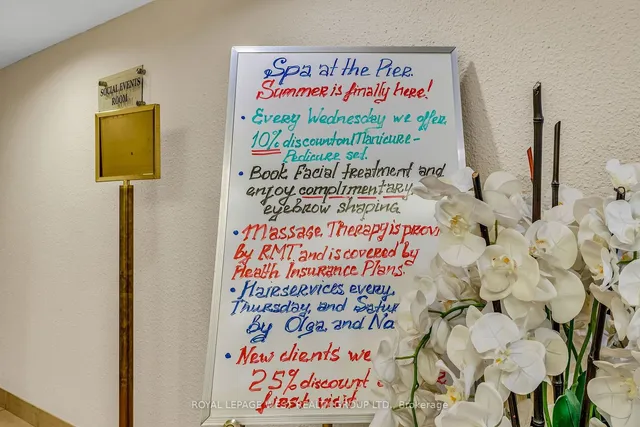 SOCIAL EVENTS
ROOM
Spa at the Pier.
Summer is finally here!
• Every Wednesday we offer
10% discount on Manicure-
Pedicure set.
• Book Facial treatment and
enjoy complimentary
eyebrow shaping
• Massage Therapy is provi
by RMT and is covered by
Health Insurance Plans.
• Hair services every
Thursday and Satur
By Olga and Na
• New clients we
25% discount
first visit
ROYAL LEPAGE WEST REALTY GROUP LTD., Brokerage